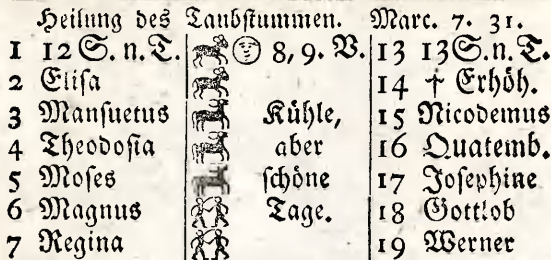 Heilung des Taubstummen. Marc. 7. 31.
1 12 S. n. T. 8, 9. V. 13 13 S. n. T.
2 Elisa 14 † Erhöh.
3 Mansuetus Kühle, 15 Nicodemus
4 Theodosia aber 16 Quatemb.
5 Moses schöne 17 Josephine
6 Magnus Tage. 18 Gottlob
7 Regina 19 Werner